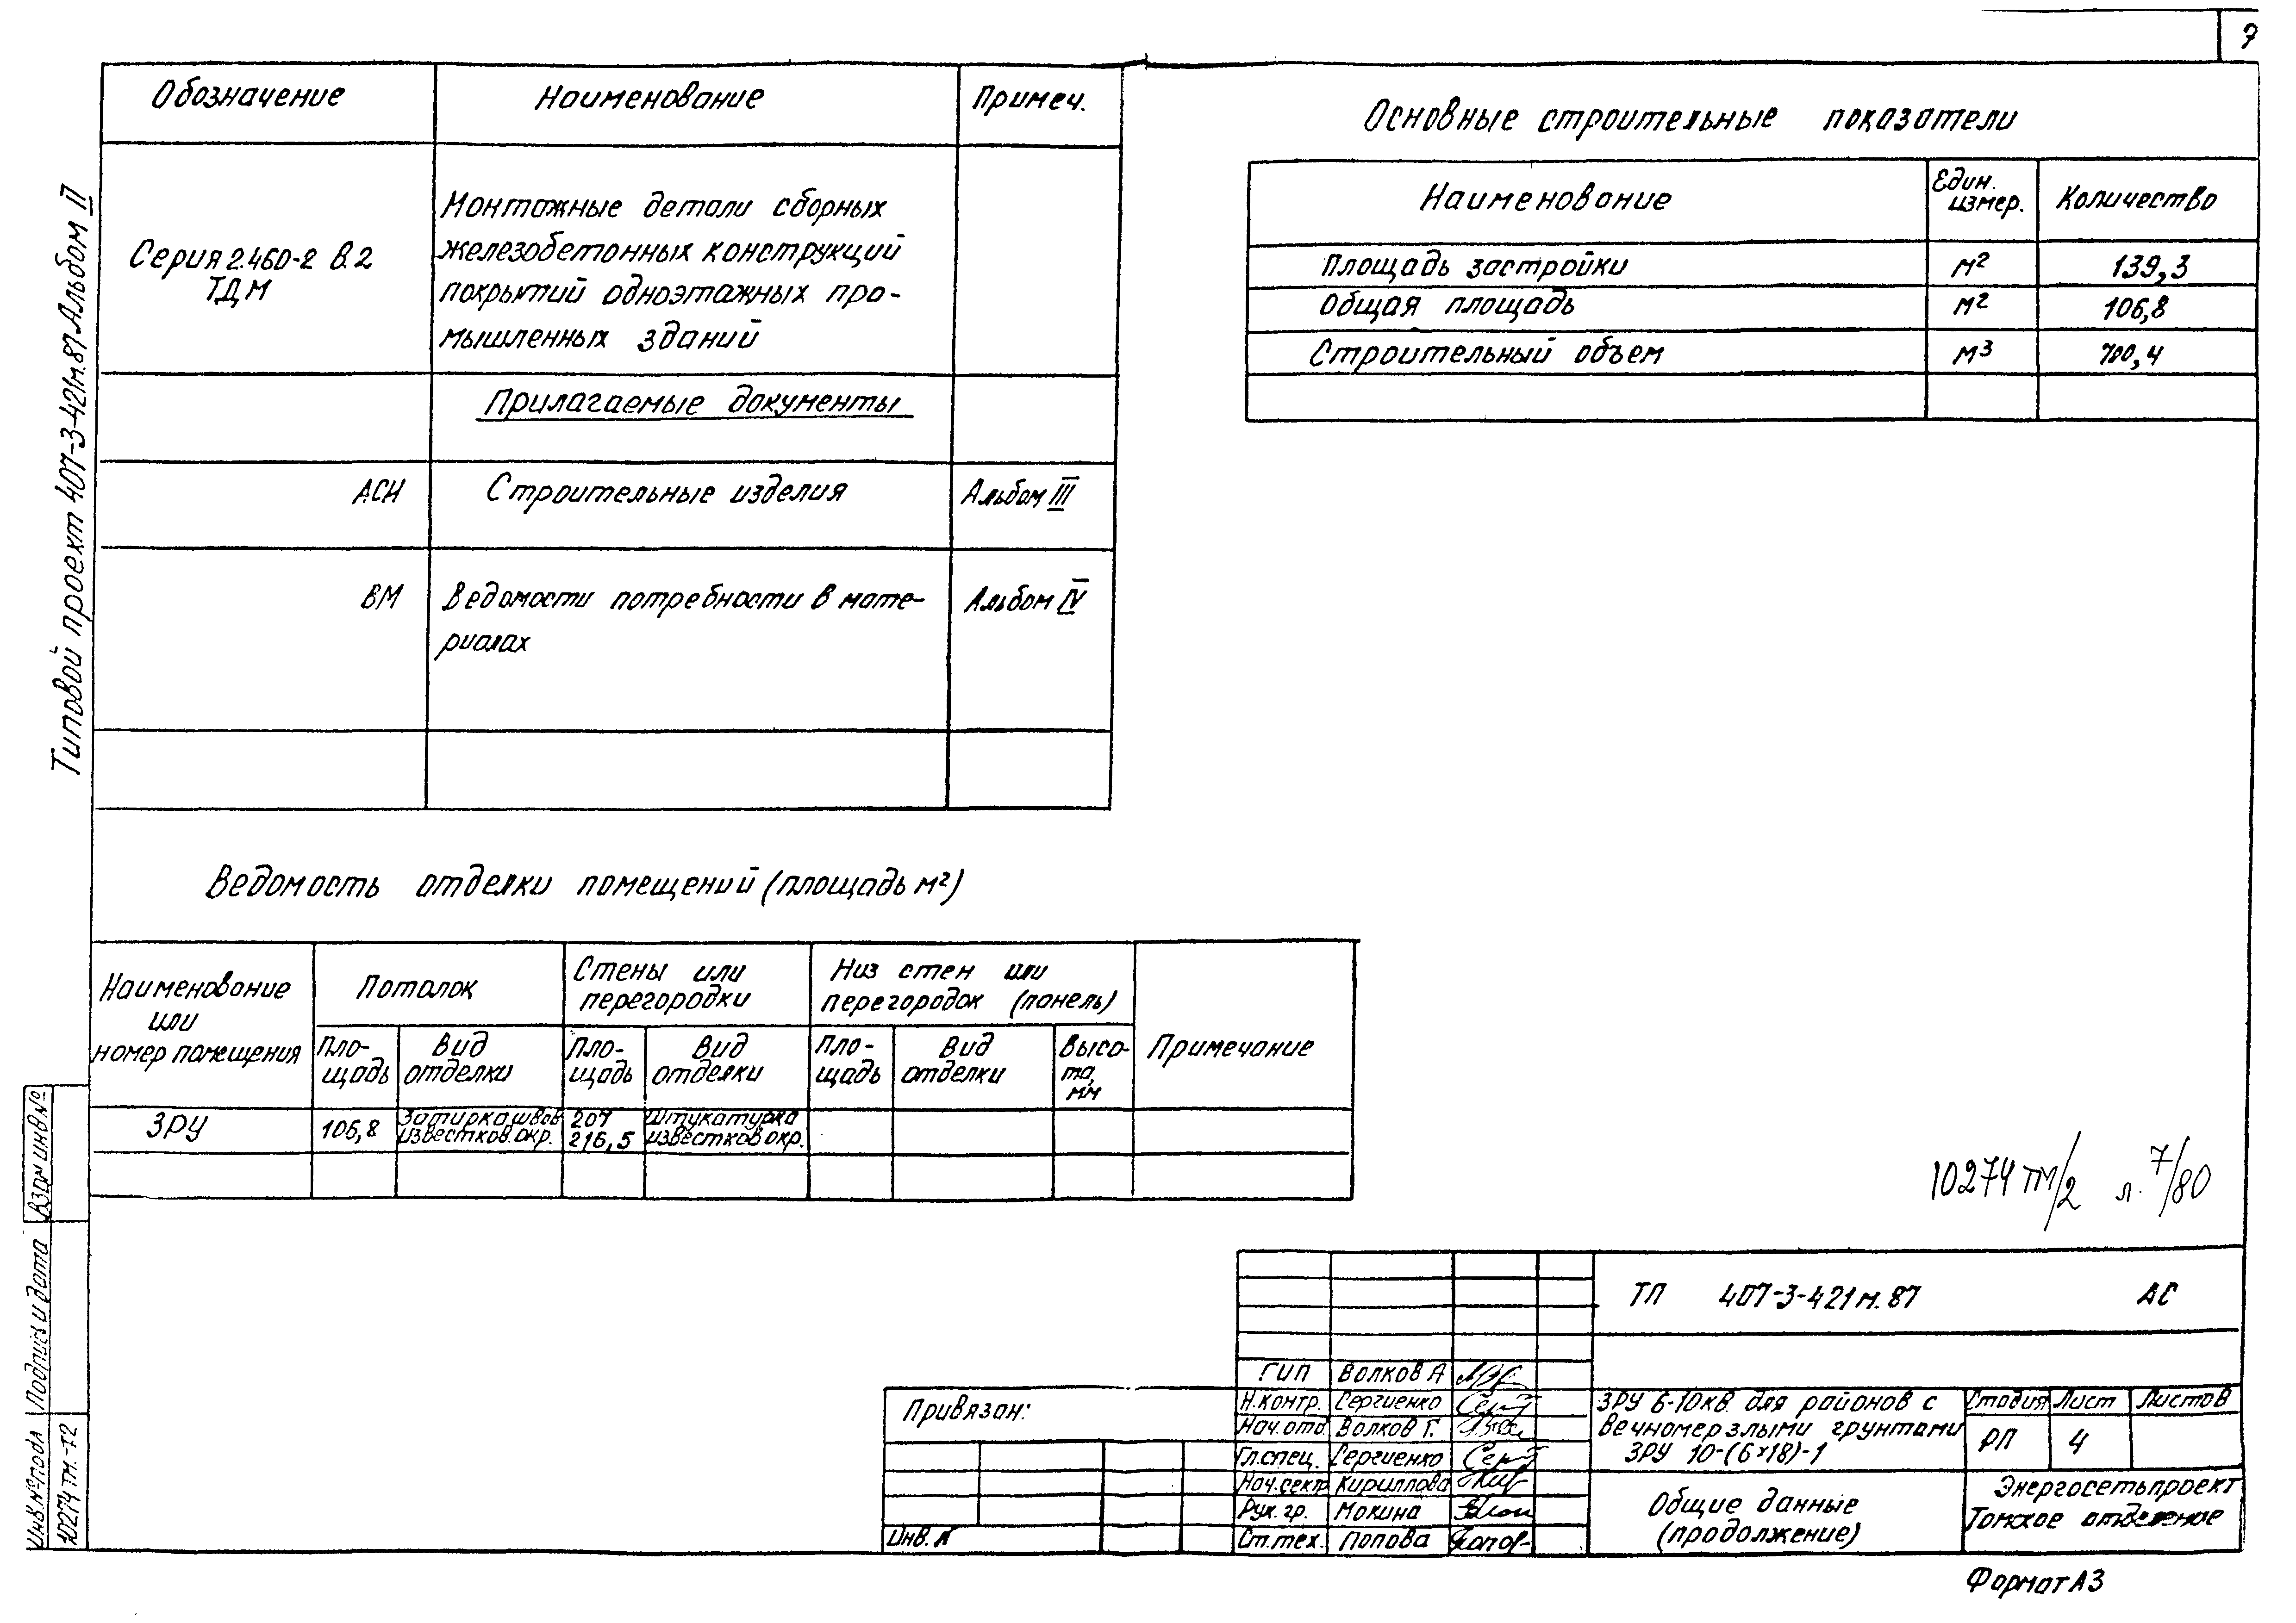 7
Типовой проект 407-3-421м.87 Альбом II
Обозначение Наименование Примеч.
Серия 2.460-2 В.2
ТДМ
Монтажные детали сборных
железобетонных конструкций
покрытий одноэтажных про-
мышленных зданий
Прилагаемые документы
АСИ Строительные изделия Альбом III
ВМ Ведомости потребности в мате-
риалах
Альбом IV
Основные строительные показатели
Наименование Един.
измер. Количество
Площадь застройки м² 139,3
Общая площадь м² 106,8
Строительный объем м³ 700,4
Ведомость отделки помещений (площадь м²)
Наименование
или
номер помещения
Потолок
Стены или
перегородки
Низ стен или
перегородок (панель)
Примечание
Пло-
щадь
Вид
отделки
Пло-
щадь
Вид
отделки
Пло-
щадь
Вид
отделки
Высо-
та,
мм
ЗРУ 106,8
Затирка швов
известков. окр.
207
216,5
Штукатурка
известков окр.
10274 ТМ/2 л. 7/80
Взам инв.№
Подпись и дата
Инв.№ подл
10274 тм.-т2
Привязан:
Инв. №
ТП 407-3-421м.87 АС
ГИП Волков А
Н.контр. Сергиенко
Нач.отд. Волков Г.
Гл.спец. Сергиенко
Нач.сект Кириллова
Рук. гр. Мокина
Ст.тех. Попова
ЗРУ 6-10кв. для районов с
вечномерзлыми грунтами
ЗРУ 10-(6×18)-1
Стадия Лист Листов
РП 4
Общие данные
(продолжение)
Энергосетьпроект
Томское отделение
Формат А3